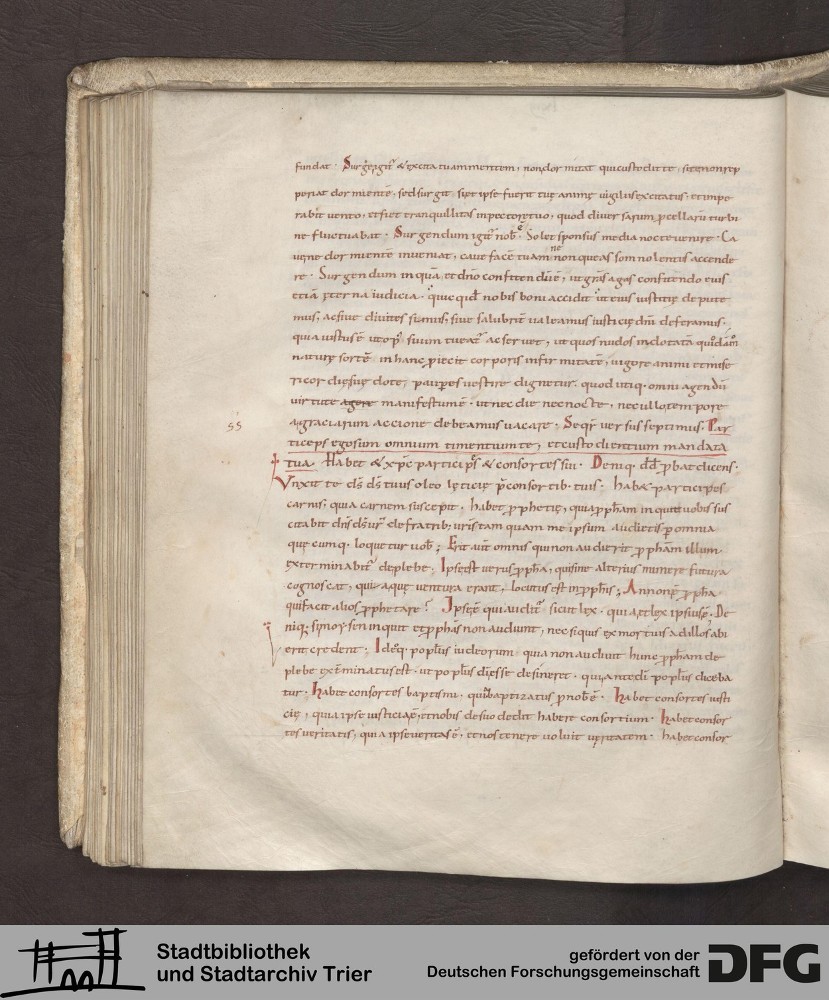 fundat · Surge igit᷑ & excita tuam mentem, non dormitat qui custodit te, si te non rep
periat dormientē, sed surgit, si & ipse fuerit tuę animę uigiliis excitatus, et impe
rabit uento, et fiet tranquillitas in pectore tuo, quod diuersarum pcellarū turbi
ne fluctuabat · Surgendum igit᷑ nob ē · Solet sponsus media nocte uenire · Ca
ue ne dormientē inueniat, caue facē tuam ne non queas somnolentus accende
re · Surgendum inquā, et dno confitendū ē, ut gras agas confitendo eius
etiā p&erna iudicia · quicqd nobis boni accidit ut eius iustitię depute
mus, ac siue diuites simus, siue salubrit ualeamus iusticię dni deferamus ·
qui a iustus ē ut op suum tueat ac seruet, ut quos nudos
naturę sorte in hanc piecit corporis infirmitatē, uigore animi et mise
ricordię suę dote, paupes uestire dignetur · quod utiq · omni agendū
uirtute agere manifestum ē · ut nec die nec nocte, nec ullo tempore
a graciarum accione debeamus uacare · Seqr uersus septimus · Par
55
ticeps ego sum omnium timentium te, et custodientium mandata
tua · Habet & xpc participes & consortes sui · Deniq · dd pbat dicens ·
Vnxit te ds ds tuus oleo lęticię p consortib · tuis · hab& participes
carnis, quia carnem suscepit · habet pphetię, quia ppham inquit uobis sus
citabit dns ds ur de fratrib; uris tam quam me ipsum audietis p omnia
quęcumq · loquetur uob; Erit aut omnis qui non audierit ppham illum ·
exterminabit de plebe; Ipse est uerus ppha, qui sine alterius munere futura
cognoscat, quia quę uentura erant, locutus est in pphis; An non ē ppha
qui facit alios pphetare? Ipse ē qui audit sicut lex · quia et lex ipsius ē · De
niq; si moysen inquit et pphas non audiunt, nec si quis ex mortuis ad illos abi
erit credent · Ideoq · poplus iudeorum quia non audiuit hunc ppham de
plebe exterminatus est · ut poplus di esse desineret · qui ante di poplus diceba
tur · Habet consortes baptismi · qui baptizatus p nob ē · Habet consortes iusti
cię, quia ipse iusticia ē, et nobis de suo dedit habere consortium · Habet consor
tes ueritatis, quia ipse ueritas ē · et nos tenere uoluit ueritatem · habet consor
Stadtbibliothek
und Stadtarchiv Trier
gefördert von der
Deutschen Forschungsgemeinschaft
DFG